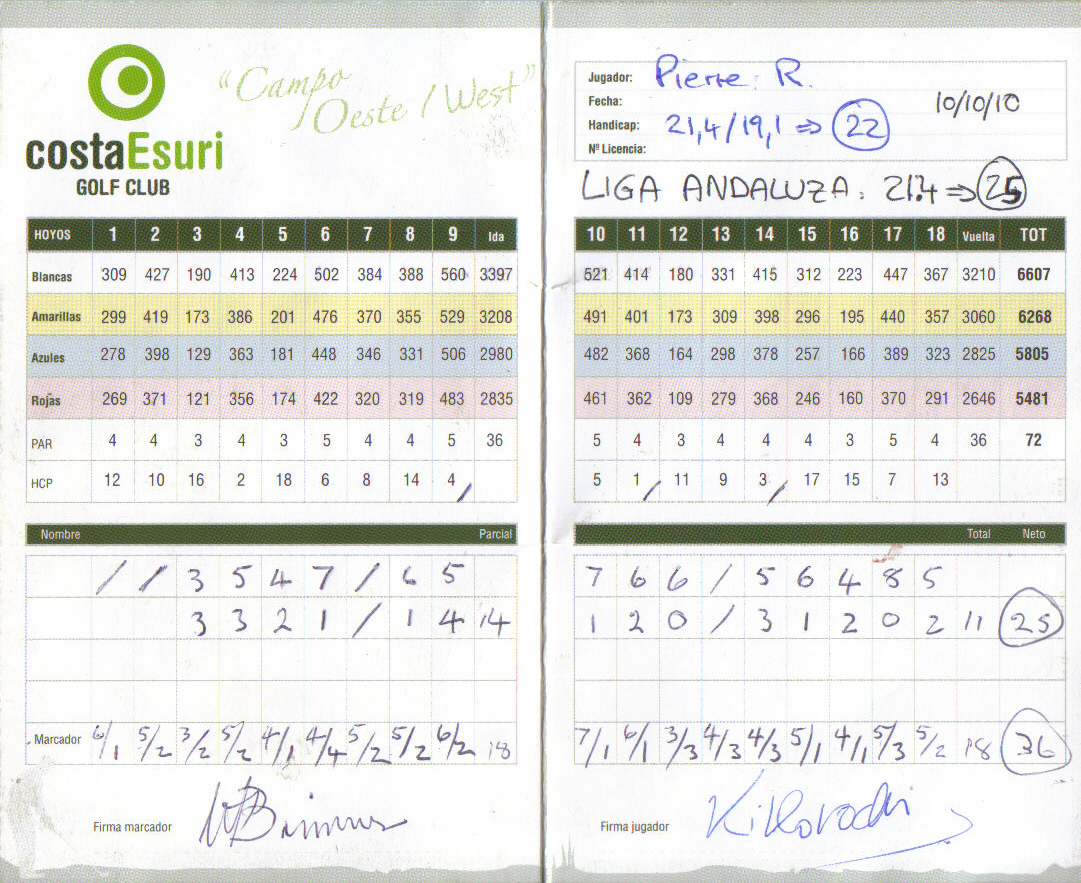 "Campo
Oeste / West"
costaEsuri
GOLF CLUB
Jugador: Pierre R.
Fecha: 10/10/10
Handicap: 21,4/19,1 ⇒ 22
Nº Licencia:
LIGA ANDALUZA: 21.4 ⇒ 25
HOYOS 1 2 3 4 5 6 7 8 9 Ida 10 11 12 13 14 15 16 17 18 Vuelta TOT
Blancas 309 427 190 413 224 502 384 388 560 3397 521 414 180 331 415 312 223 447 367 3210 6607
Amarillas 299 419 173 386 201 476 370 355 529 3208 491 401 173 309 398 296 195 440 357 3060 6268
Azules 278 398 129 363 181 448 346 331 506 2980 482 368 164 298 378 257 166 389 323 2825 5805
Rojas 269 371 121 356 174 422 320 319 483 2835 461 362 109 279 368 246 160 370 291 2646 5481
PAR 4 4 3 4 3 5 4 4 5 36 5 4 3 4 4 4 3 5 4 36 72
HCP 12 10 16 2 18 6 8 14 4 / 5 1 / 11 9 3 / 17 15 7 13
Nombre Parcial Total Neto
/ / 3 5 4 7 / 6 5 7 6 6 / 5 6 4 8 5
3 3 2 1 / 1 4 14 1 2 0 / 3 1 2 0 2 11 25
Marcador 6/1 5/2 3/2 5/2 4/1 4/4 5/2 5/2 6/2 18 7/1 6/1 3/3 4/3 4/3 5/1 4/1 5/3 5/2 18 36
Firma marcador
Firma jugador